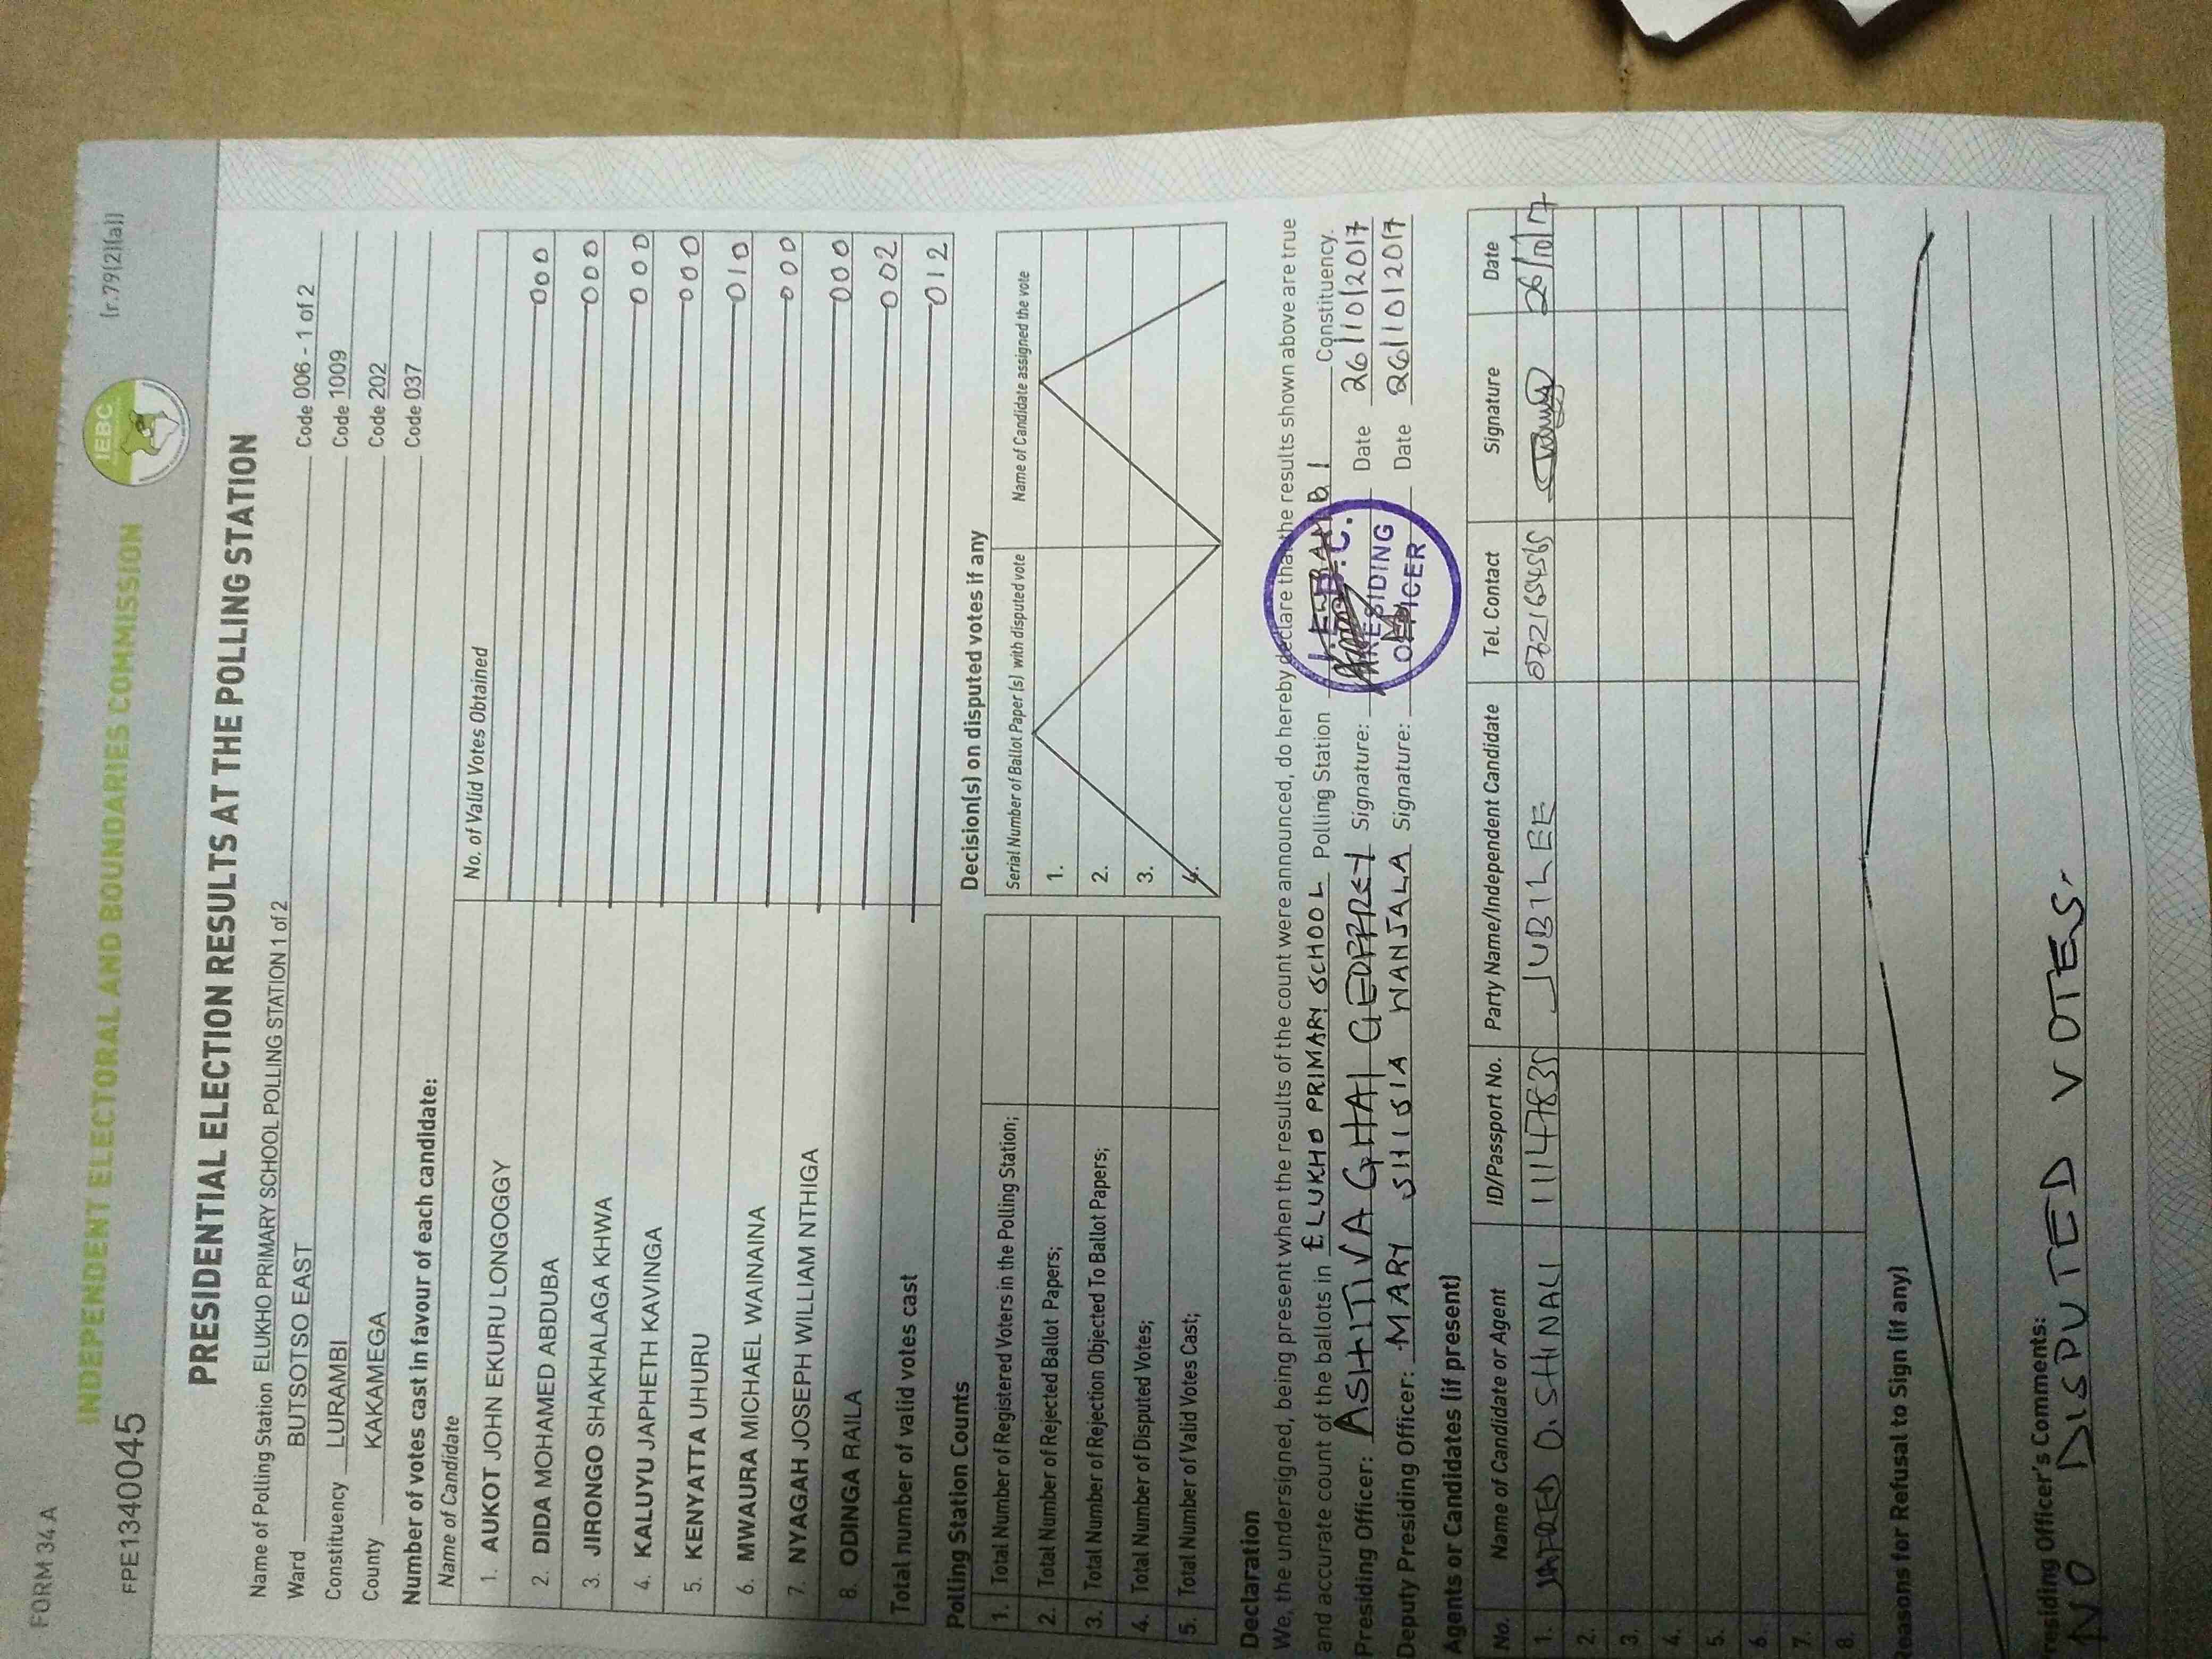 FORM 34 A
(r.79(2)(a))
INDEPENDENT ELECTORAL AND BOUNDARIES COMMISSION
IEBC
FPE1340045
PRESIDENTIAL ELECTION RESULTS AT THE POLLING STATION
Name of Polling Station ELUKHO PRIMARY SCHOOL POLLING STATION 1 of 2 Code 006 - 1 of 2
Ward BUTSOTSO EAST Code 1009
Constituency LURAMBI Code 202
County KAKAMEGA Code 037
Number of votes cast in favour of each candidate:
Name of Candidate No. of Valid Votes Obtained
1. AUKOT JOHN EKURU LONGOGGY 000
2. DIDA MOHAMED ABDUBA 000
3. JIRONGO SHAKHALAGA KHWA 000
4. KALUYU JAPHETH KAVINGA 000
5. KENYATTA UHURU 010
6. MWAURA MICHAEL WAINAINA 000
7. NYAGAH JOSEPH WILLIAM NTHIGA 000
8. ODINGA RAILA 002
Total number of valid votes cast 012
Polling Station Counts
1. Total Number of Registered Voters in the Polling Station;
2. Total Number of Rejected Ballot Papers;
3. Total Number of Rejection Objected To Ballot Papers;
4. Total Number of Disputed Votes;
5. Total Number of Valid Votes Cast;
Decision(s) on disputed votes if any
Serial Number of Ballot Paper (s) with disputed vote Name of Candidate assigned the vote
1.
2.
3.
4.
Declaration
We, the undersigned, being present when the results of the count were announced, do hereby declare that the results shown above are true
and accurate count of the ballots in ELUKHO PRIMARY SCHOOL Polling Station LURAMBI Constituency.
Presiding Officer: ASHITIVA GHAI GEOFFREY Signature: Date 26/10/2017
Deputy Presiding Officer: MARY SHISIA WANJALA Signature: Date 26/10/2017
I.E.B.C.
PRESIDING
OFFICER
Agents or Candidates (if present)
No. Name of Candidate or Agent ID/Passport No. Party Name/Independent Candidate Tel. Contact Signature Date
1. JAPRED O. SHINALI 11147835 JUBILEE 0721684565 26/10/17
2.
3.
4.
5.
6.
7.
8.
Reasons for Refusal to Sign (if any)
residing Officer's Comments:
NO DISPUTED VOTES.